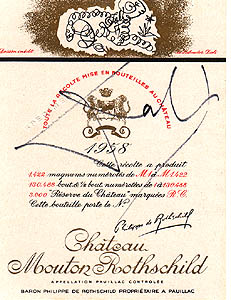 Dessin inédit de Salvador Dali
TOUTE LA RÉCOLTE MISE EN BOUTEILLES AU CHÂTEAU
1958
Cette récolte a produit
1.422 magnums numérotés de M1 à M1422
130.488 bout. & ½ bout. numérotées de 1 à 130.488
3.000 "Réserve du Château" marquées R.C.
Cette bouteille porte le N°
Philippe de Rothschild
Château
Mouton Rothschild
APPELLATION PAUILLAC CONTROLÉE
BARON PHILIPPE DE ROTHSCHILD PROPRIÉTAIRE A PAUILLAC